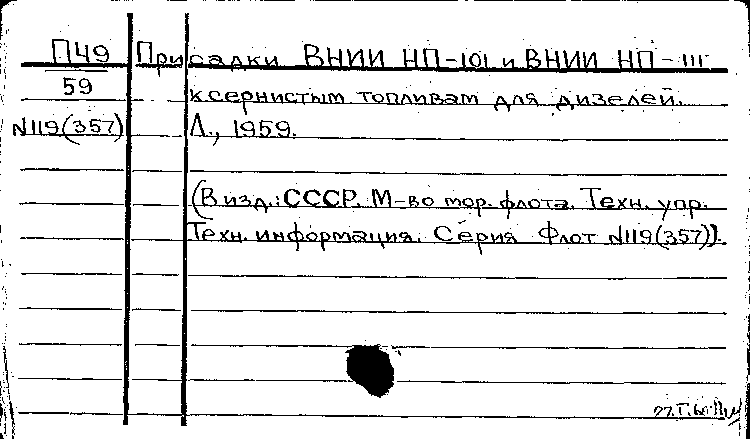 П49 Присадки ВНИИ НП-101 и ВНИИ НП-111
59 к сернистым топливам для дизелей.
N119(357) Л., 1959.
(В изд.: СССР. М-во мор. флота. Техн. упр.
Техн. информация. Серия Флот N119(357)).